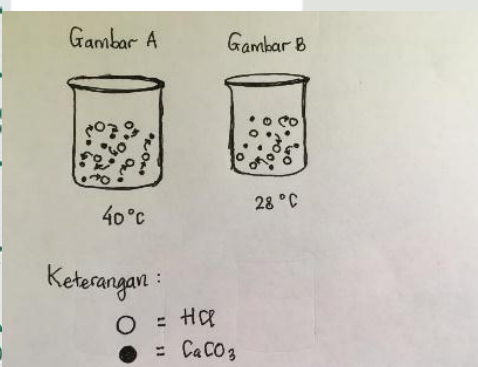 Gambar A
Gambar B
40°C
28°C
Keterangan :
= HCl
= CaCO3